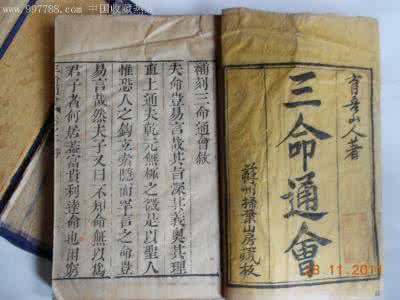 www.997788.com 中国收藏热线
育吾山人著
三命通會
蘓州掃葉山房藏板
補刻三命通會敘
夫命豈易言哉其旨深其義奥其理
直上通夫乾元無極之微是以聖人
惟恐人之鉤玄索隱而罕言之命豈
易言哉然夫子又曰不知命無以爲
君子者何居蓋富貴利達命也困窮
11 2011